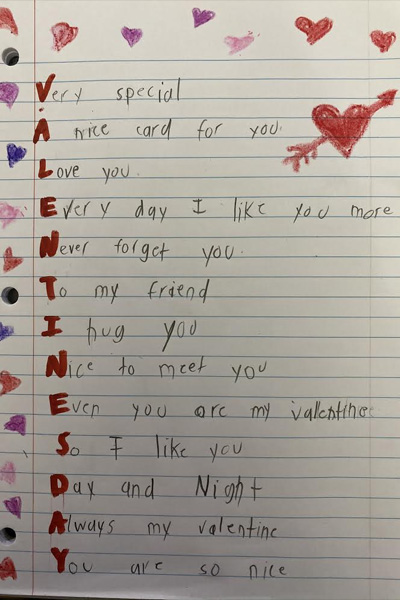 Very special
A nice card for you.
Love you.
Every day I like you more
Never forget you.
To my friend
I hug you
Nice to meet you
Even you are my valentine
So I like you
Day and Night
Always my valentine
You are so nice